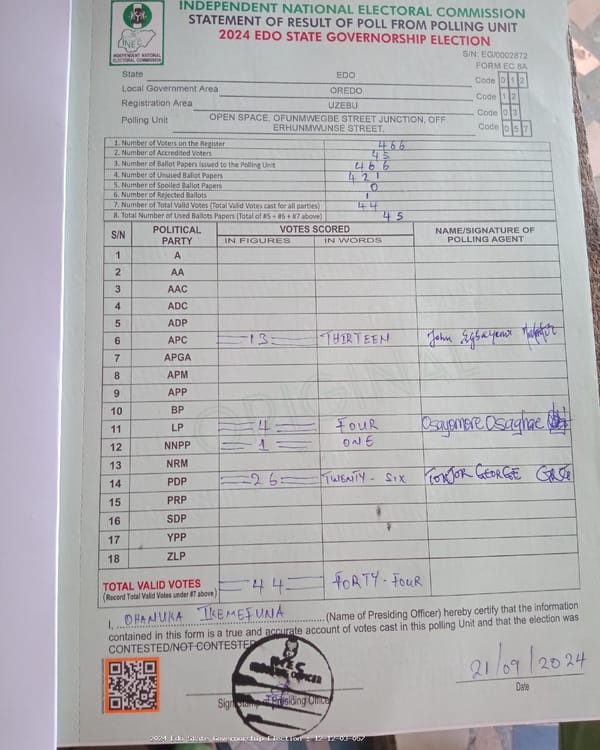 INDEPENDENT NATIONAL ELECTORAL COMMISSION
STATEMENT OF RESULT OF POLL FROM POLLING UNIT
2024 EDO STATE GOVERNORSHIP ELECTION
INEC
INDEPENDENT NATIONAL
ELECTORAL COMMISSION
S/N: EG/0002872
FORM EC 8A
State EDO Code 0 1 2
Local Government Area OREDO Code 1 2
Registration Area UZEBU Code 0 3
Polling Unit OPEN SPACE, OFUNMWEGBE STREET JUNCTION, OFF ERHUNMWUNSE STREET. Code 0 5 7
1. Number of Voters on the Register 466
2. Number of Accredited Voters 45
3. Number of Ballot Papers Issued to the Polling Unit 466
4. Number of Unused Ballot Papers 421
5. Number of Spoiled Ballot Papers 0
6. Number of Rejected Ballots 1
7. Number of Total Valid Votes (Total Valid Votes cast for all parties) 44
8. Total Number of Used Ballots Papers (Total of #5 + #6 + #7 above) 45
S/N POLITICAL PARTY VOTES SCORED NAME/SIGNATURE OF POLLING AGENT
IN FIGURES IN WORDS
1 A
2 AA
3 AAC
4 ADC
5 ADP
6 APC 13 THIRTEEN John
7 APGA
8 APM
9 APP
10 BP
11 LP 4 FOUR Osayomore Osaghae
12 NNPP 1 ONE
13 NRM
14 PDP 26 TWENTY-SIX GEORGE
15 PRP
16 SDP
17 YPP
18 ZLP
ORIGINAL
TOTAL VALID VOTES 44 FORTY-FOUR
(Record Total Valid Votes under #7 above)
I, OHANUKA IKEMEFUNA (Name of Presiding Officer) hereby certify that the information
contained in this form is a true and accurate account of votes cast in this polling Unit and that the election was
CONTESTED/NOT CONTESTED
INEC
PRESIDING OFFICER
21/09/2024
Sign/Stamp of Presiding Officer
Date
2024 Edo State Governorship Election : 12-12-03-057